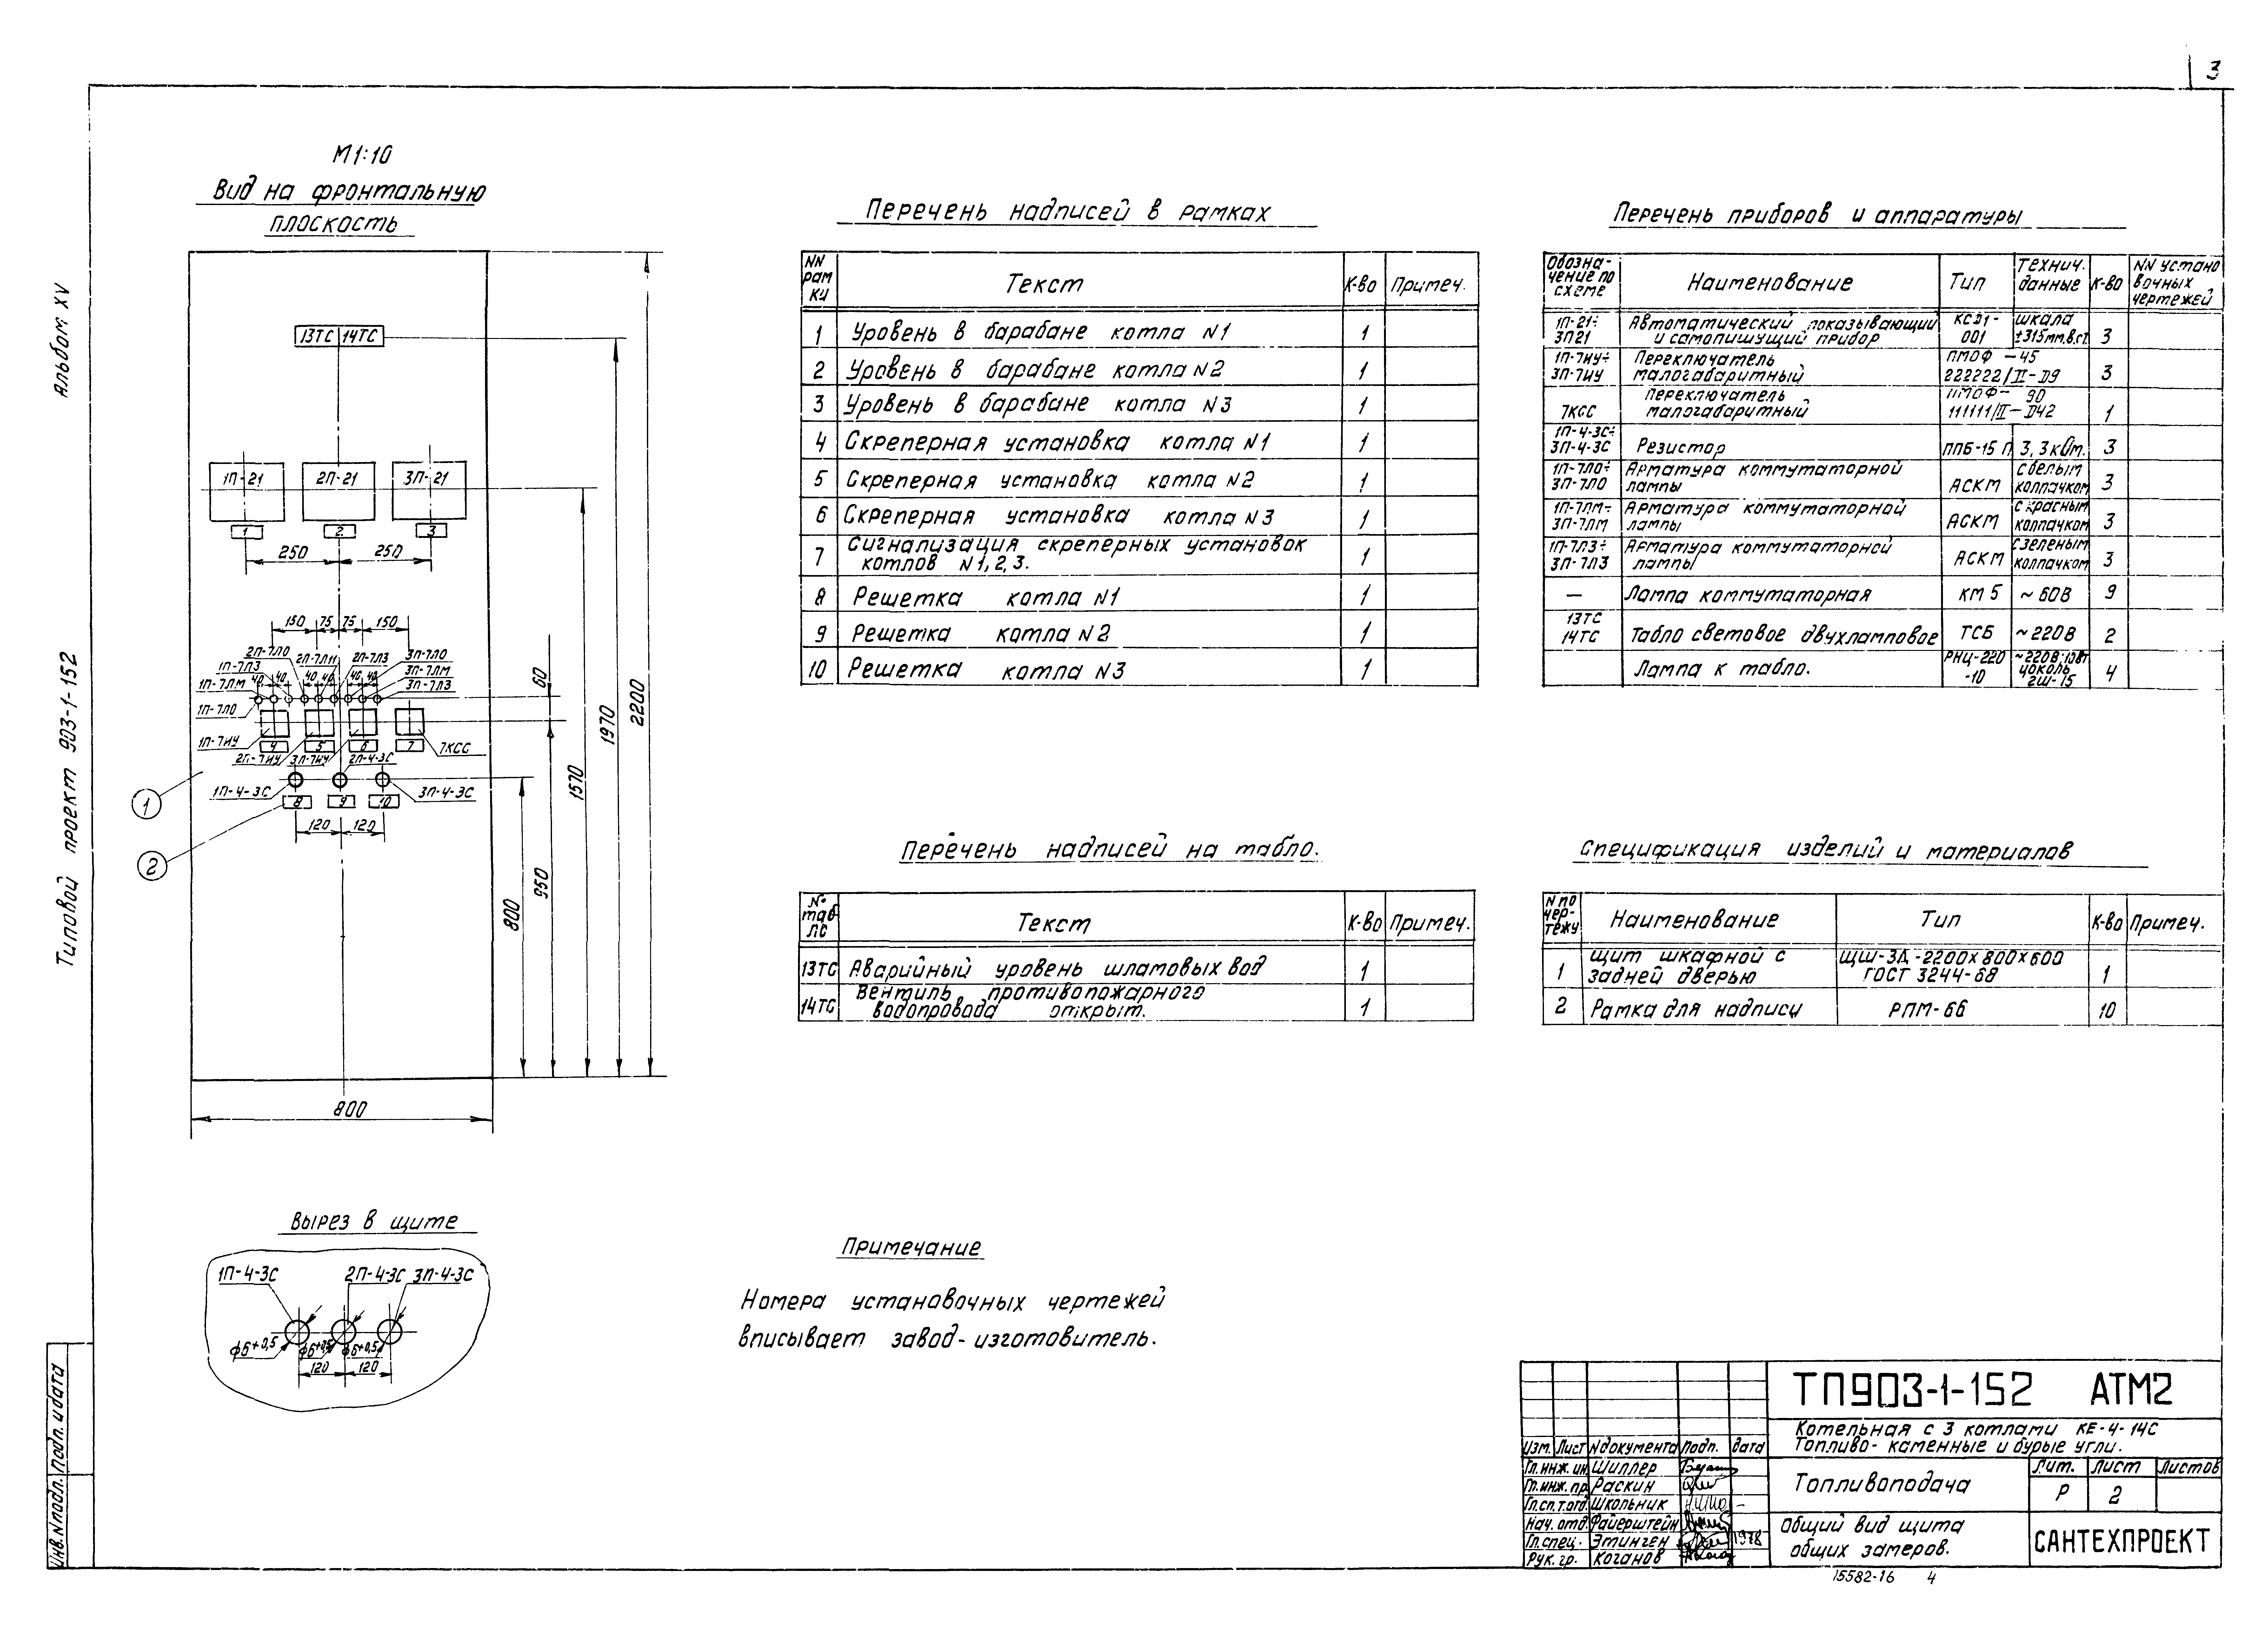 3
Альбом XV
Типовой проект 903-1-152
Инв.Nподл. Подп. и дата
М1:10
Вид на фронтальную
плоскость
13ТС 14ТС
1П-21 2П-21 3П-21
1 2 3
250 250
150 75 75 150
2П-7ЛО 2П-7ЛЗ 3П-7ЛО
1П-7ЛЗ 3П-7ЛМ
1П-7ЛМ 40 40 40 40 40 40 3П-7ЛЗ
1П-7ЛО
1П-7ИУ 4 5 6 7 7КСС
2П-7ИУ 3П-7ИУ 2П-4-3С
1П-4-3С 3П-4-3С
8 9 10
120 120
1
2
60
800
950
1570
1970
2200
800
Вырез в щите
1П-4-3С 2П-4-3С 3П-4-3С
ф6+0,5 ф6+0,5 ф6+0,5
120 120
Перечень надписей в рамках
NN рам ки Текст К-во Примеч.
1 Уровень в барабане котла N1 1
2 Уровень в барабане котла N2 1
3 Уровень в барабане котла N3 1
4 Скреперная установка котла N1 1
5 Скреперная установка котла N2 1
6 Скреперная установка котла N3 1
7 Сигнализация скреперных установок
котлов N1,2,3. 1
8 Решетка котла N1 1
9 Решетка котла N2 1
10 Решетка котла N3 1
Перечень надписей на табло.
№ таб ЛС Текст К-во Примеч.
13ТС Аварийный уровень шламовых вод 1
14ТС Вентиль противопожарного
водопровода открыт. 1
Примечание
Номера установочных чертежей
вписывает завод-изготовитель.
Перечень приборов и аппаратуры
Обозна-
чение по
схеме Наименование Тип Технич.
данные К-во NN устано
вочных
чертежей
1П-21÷ Автоматический показывающий КСД1- шкала
3П21 и самопишущий прибор 001 ±315мм.в.ст. 3
1П-7ИУ÷ Переключатель ПМОФ-45
3П-7ИУ малогабаритный 222222/II-Д9 3
Переключатель ПМОФ-90
7КСС малогабаритный 111111/II-Д42 1
1П-4-3С÷
3П-4-3С Резистор ППБ-15 П 3,3 кОм. 3
1П-7ЛО÷ Арматура коммутаторной с белым
3П-7ЛО лампы АСКМ колпачком 3
1П-7ЛМ÷ Арматура коммутаторной с красным
3П-7ЛМ лампы АСКМ колпачком 3
1П-7ЛЗ÷ Арматура коммутаторной с зеленым
3П-7ЛЗ лампы АСКМ колпачком 3
— Лампа коммутаторная КМ5 ~60В 9
13ТС
14ТС Табло световое двухламповое ТСБ ~220В 2
Лампа к табло. РНЦ-220
-10 ~220В·10Вт
цоколь
2Ш-15 4
Спецификация изделий и материалов
N по
чер-
тежу Наименование Тип К-во Примеч.
1 Щит шкафной с ЩШ-ЗД-2200х800х600
задней дверью ГОСТ 3244-68 1
2 Рамка для надписи РПМ-66 10
ТП903-1-152 АТМ2
Котельная с 3 котлами КЕ-4-14С
Топливо-каменные и бурые угли.
Изм. Лист Nдокумента Подп. дата
Гл.инж.ин. Шиллер
Гл.инж.пр. Раскин
Гл.сп.т.отд. Школьник
Нач.отд. Файерштейн
Гл.спец. Этинген 1978
Рук.гр. Коганов
Топливоподача
Лит. Лист Листов
Р 2
Общий вид щита
общих замеров.
САНТЕХПРОЕКТ
15582-16 4